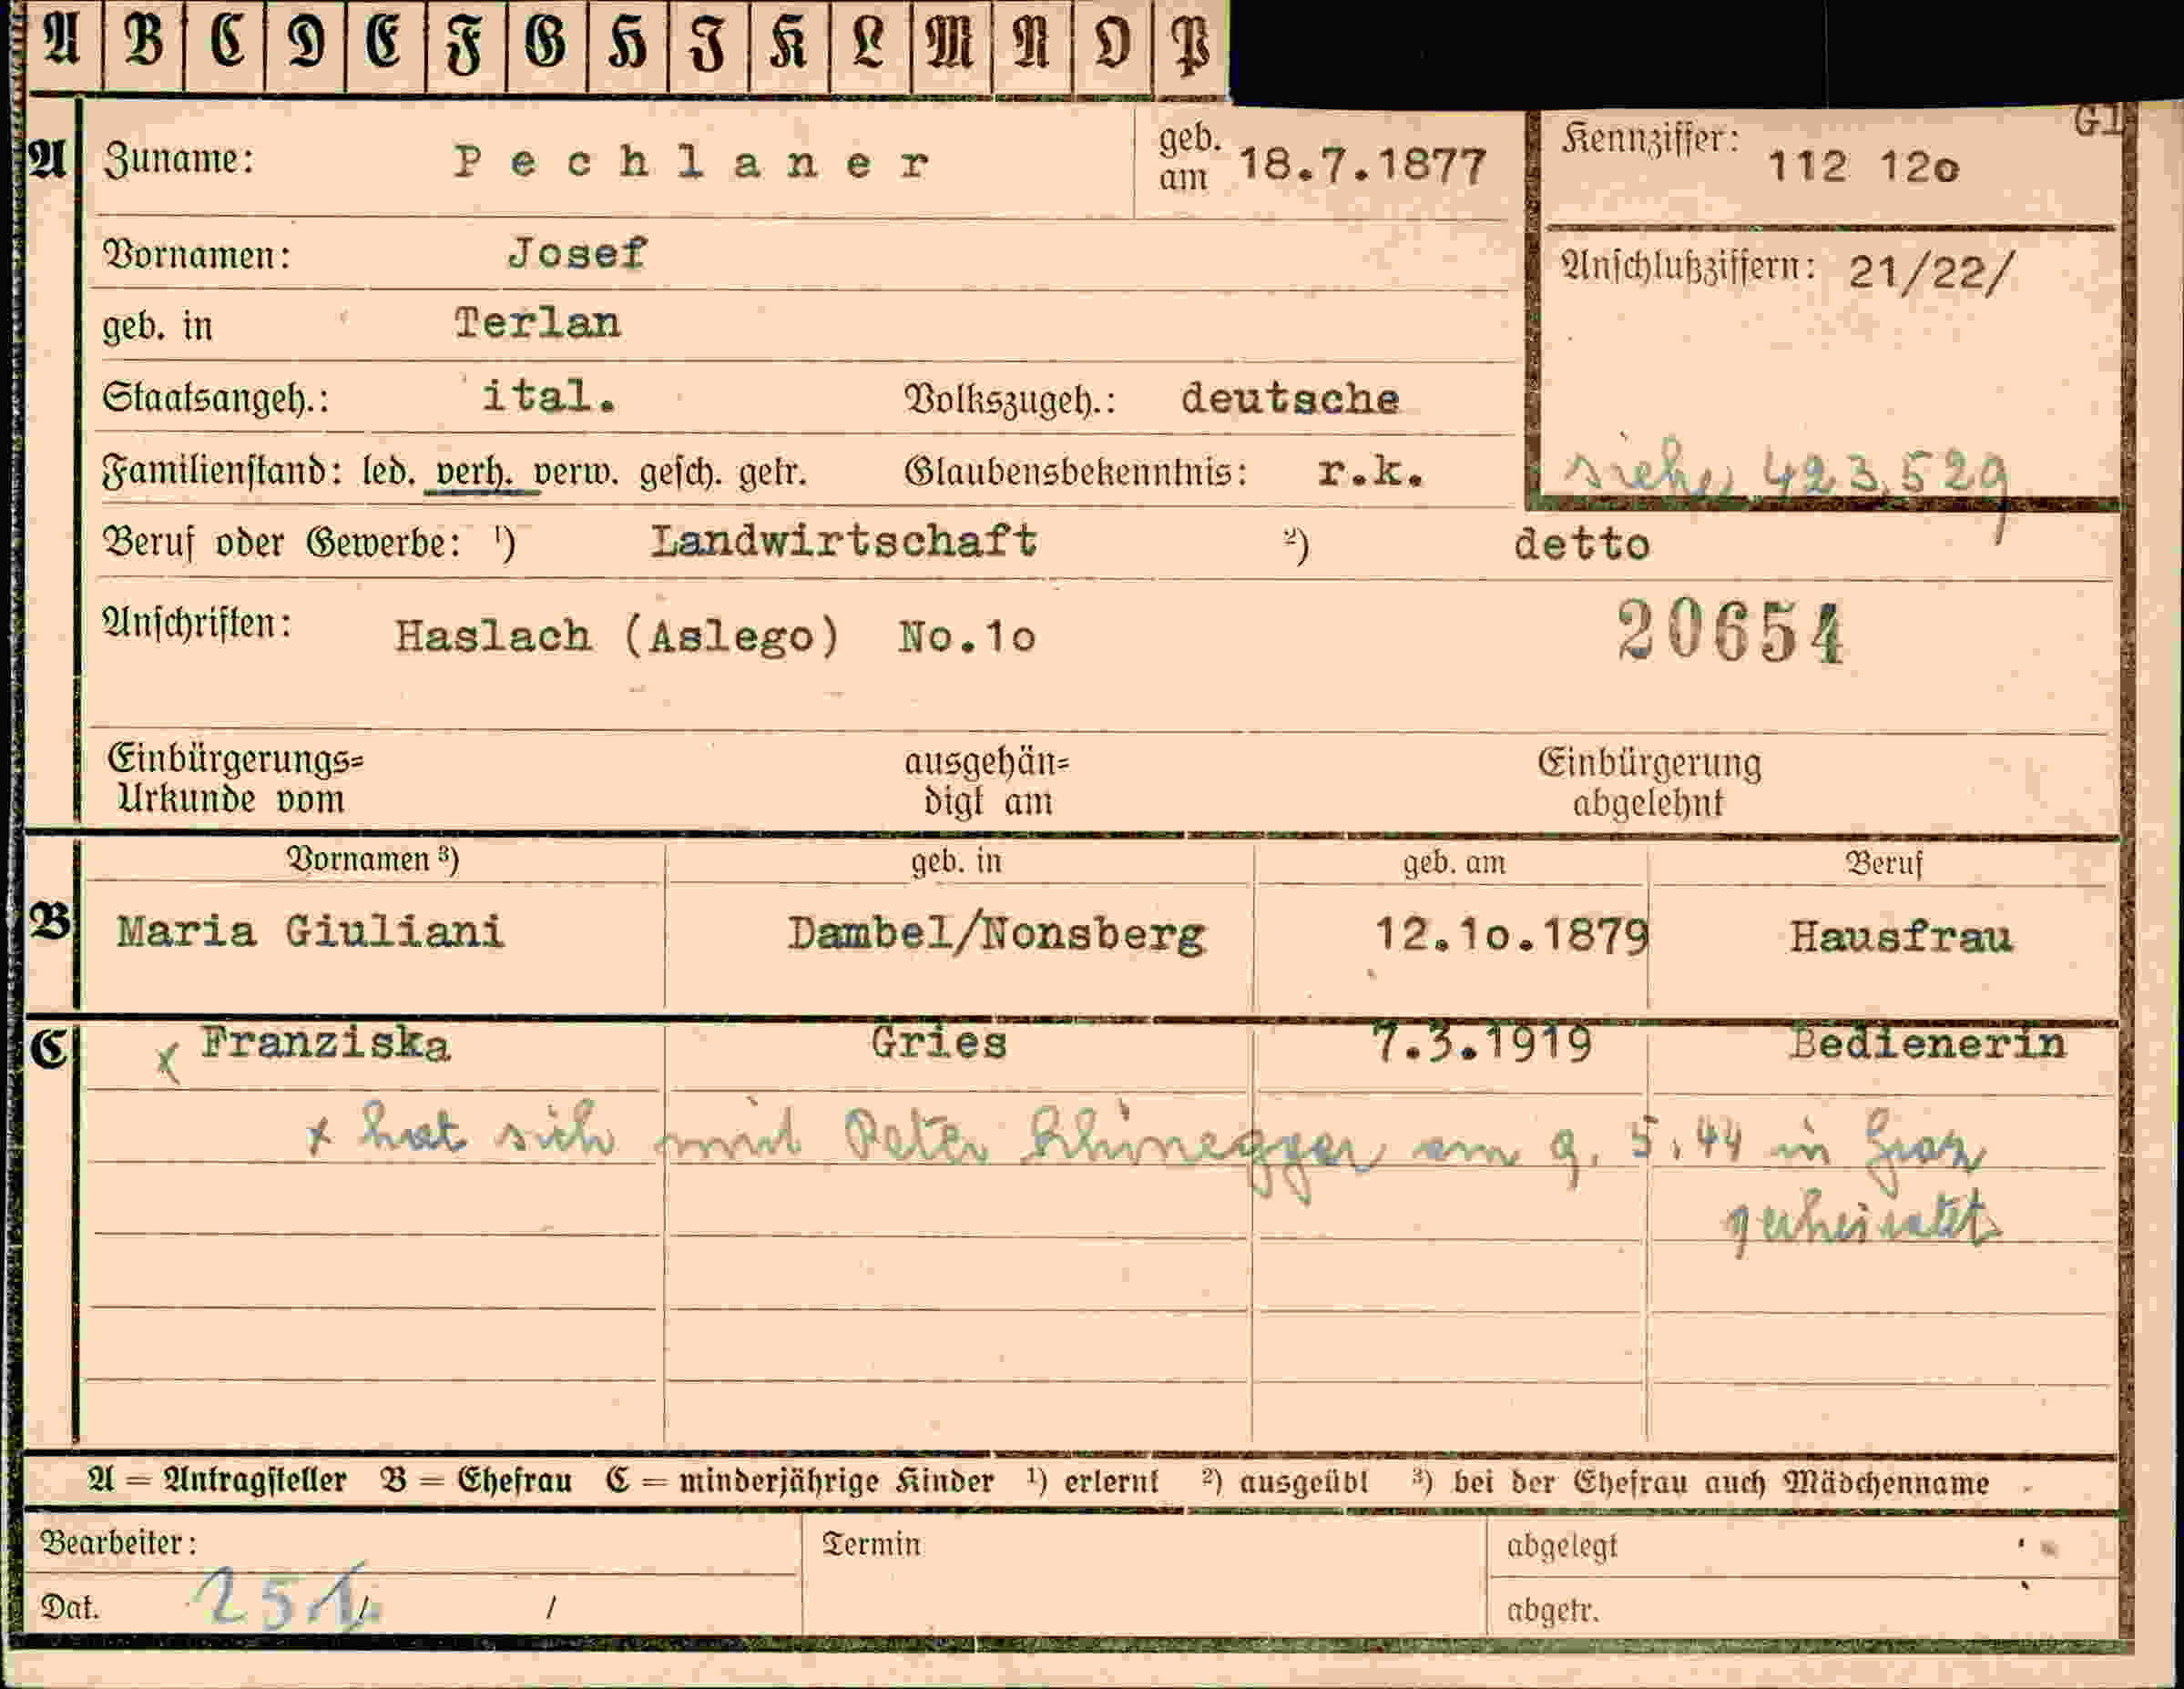 A B C D E F G H I K L M N O P
G1
A Zuname: Pechlaner geb. am 18.7.1877 Kennziffer: 112 12o
Vornamen: Josef Anschlußziffern: 21/22/
geb. in Terlan
Staatsangeh.: ital. Volkszugeh.: deutsche
Familienstand: led. verh. verw. gesch. getr. Glaubensbekenntnis: r.k. siehe 423.529
Beruf oder Gewerbe: ¹) Landwirtschaft ²) detto
Anschriften: Haslach (Aslego) No.1o 20654
Einbürgerungs= ausgehän= Einbürgerung
Urkunde vom digt am abgelehnt
Vornamen ³) geb. in geb. am Beruf
B Maria Giuliani Dambel/Nonsberg 12.1o.1879 Hausfrau
C x Franziska Gries 7.3.1919 Bedienerin
x hat sich mit Peter am 9. 5.44 in Graz
geheiratet
A = Antragsteller B = Ehefrau C = minderjährige Kinder ¹) erlernt ²) ausgeübt ³) bei der Ehefrau auch Mädchenname
Bearbeiter: Termin abgelegt
Dat. / / abgetr.